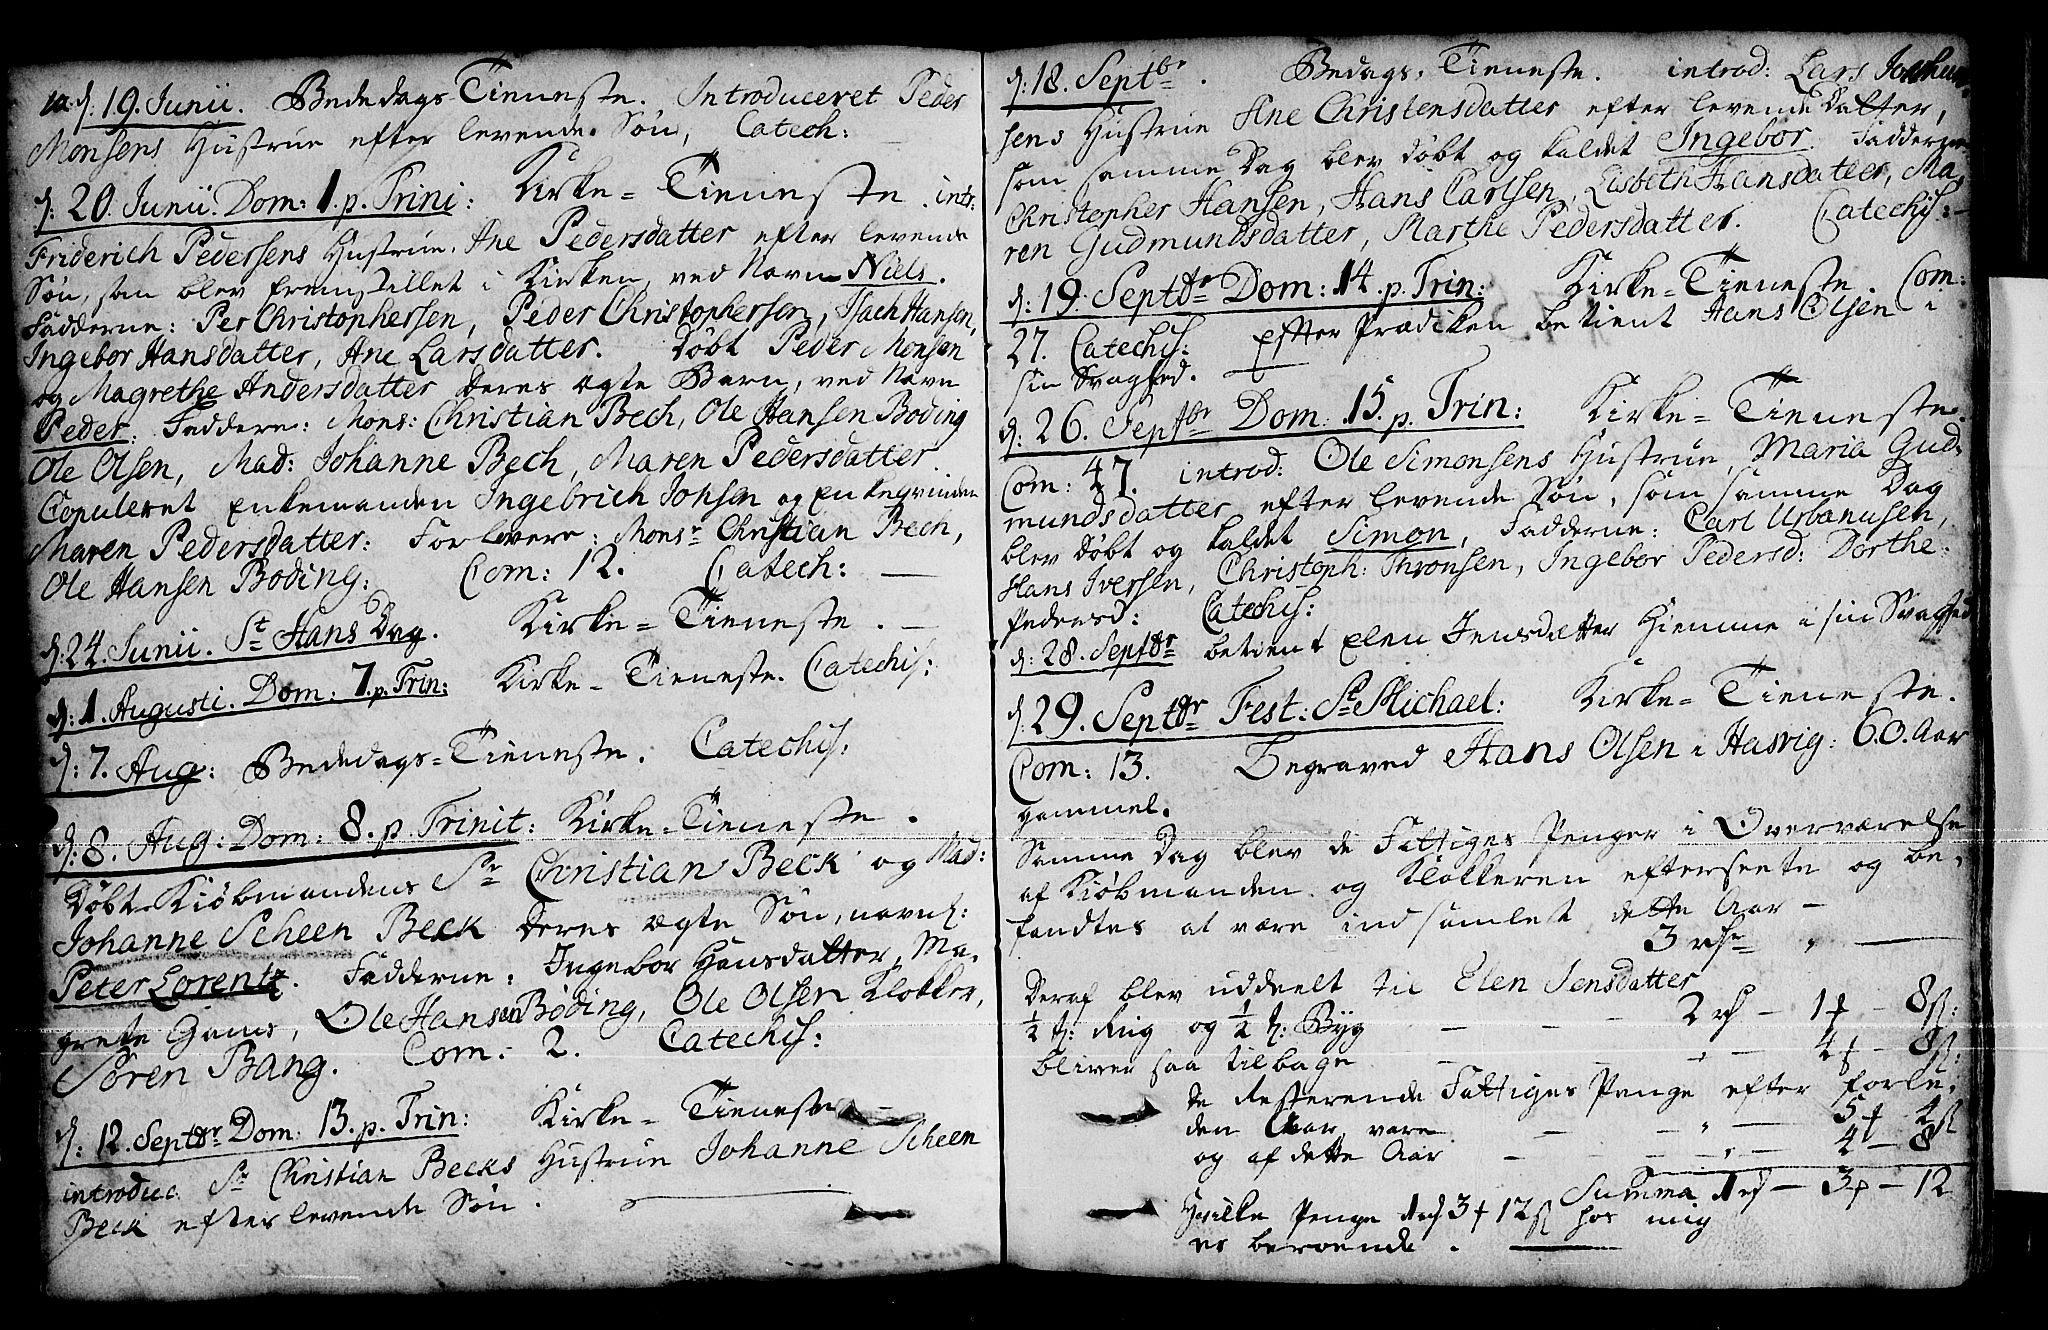 d: 19. Junii. Bededags-Tieneste. Introduceret Peder
Monsens Hustrue efter levende Søn, Catech:
d: 20. Junii. Dom: 1. p. Trini: Kirke-Tieneste. intr:
Friderich Pedersens Hustrue, Ane Pedersdatter efter levende
Søn, som blev fremstillet i Kirken, ved Navn Niels.
Fadderne: Per Christophersen, Peder Christophersen, Isach Hansen,
Ingebor Hansdatter, Ane Larsdatter. Døbt Peder Monsen
og Magrethe Andersdatter deres ægte Barn, ved Navn
Peder: Faddere: Mons: Christian Bech, Ole Hansen Boding
Ole Olsen, Mad: Johanne Bech, Maren Pedersdatter.
Copuleret Enkemanden Ingebrich Johsen og Enkeqvinden
Maren Pedersdatter: Forlovere: Monsr Christian Bech,
Ole Hansen Boding: Com: 12. Catech: —
d: 24. Junii. St Hans Dag. Kirke-Tieneste. —
d: 1. Augusti. Dom: 7. p. Trin: Kirke-Tieneste. Catechis:
d: 7. Aug: Bededags-Tieneste. Catechis:
d: 8. Aug: Dom: 8. p. Trinit: Kirke-Tieneste.
Døbt Kiøbmandens Sr Christian Beck og Mad:
Johanne Scheen Beck deres ægte Søn, navnl:
Peter Lorentz. Fadderne: Ingebor Hansdatter, Ma-
grete Gams, Ole Hansen Bøding, Ole Olsen Klokker,
Sören Bang. Com: 2. Catechis:
d: 12. Septbr Dom: 13. p. Trin: Kirke-Tieneste —
introduc. Sr Christian Becks Hustrue Johanne Scheen
Beck efter levende Søn.
d: 18. Septbr. Bedags-Tieneste. introd: Lars
sens Hustrue Ane Christensdatter efter levende Datter,
som samme Dag blev døbt og kaldet Ingebor. Fadderne
Christopher Hansen, Hans Carlsen, Lisbeth Hansdatter, Ma-
ren Gudmundsdatter, Marthe Pedersdatter. Catechis: —
d: 19. Septbr Dom: 14. p. Trin: Kirke-Tieneste. Com:
27. Catechis: Efter Prædiken betient Hans Olsen i
sin Svaghed.
d: 26. Septbr Dom. 15. p. Trin: Kirke-Tieneste.
Com: 47. introd: Ole Simonsens Hustrue, Maria Gud-
mundsdatter efter levende Søn, som samme Dag
blev døbt og kaldet Simon, Fadderne: Carl Urbanusen,
Hans Iversen, Christoph: Thronsen, Ingebor Pedersd: Dorthe
Pedersd: Catechis:
d: 28. Septbr betient Elen Jensdatter Hiemme i sin Svaghed
d: 29. Septbr Fest: St Michael: Kirke-Tieneste.
Com: 13. Begraved Hans Olsen i Hasvig: 60. Aar
gammel.
Samme Dag blev de Fattiges Penger i Overværelse
af Kiøbmanden og Klokkeren efterseete og be-
fandtes at være indsamlet dette Aar —
3 rdr „ —
Deraf blev uddeelt til Elen Jensdatter
½ t: Rug og ½ t: Byg — — — 2 rd — 1 f — 8 ß:
bliver saa tilbage — „ — 4 f — 8 ß:
de resterende Fattiges Penge efter forle-
den Aar, vare — — „ — 5 f 4 ß
og af dette Aar — — „ — 4 — 8
Summa 1 rd — 3 f — 12
Hvilke Penge 1 rd 3 f 12 ß hos mig
er beroende.